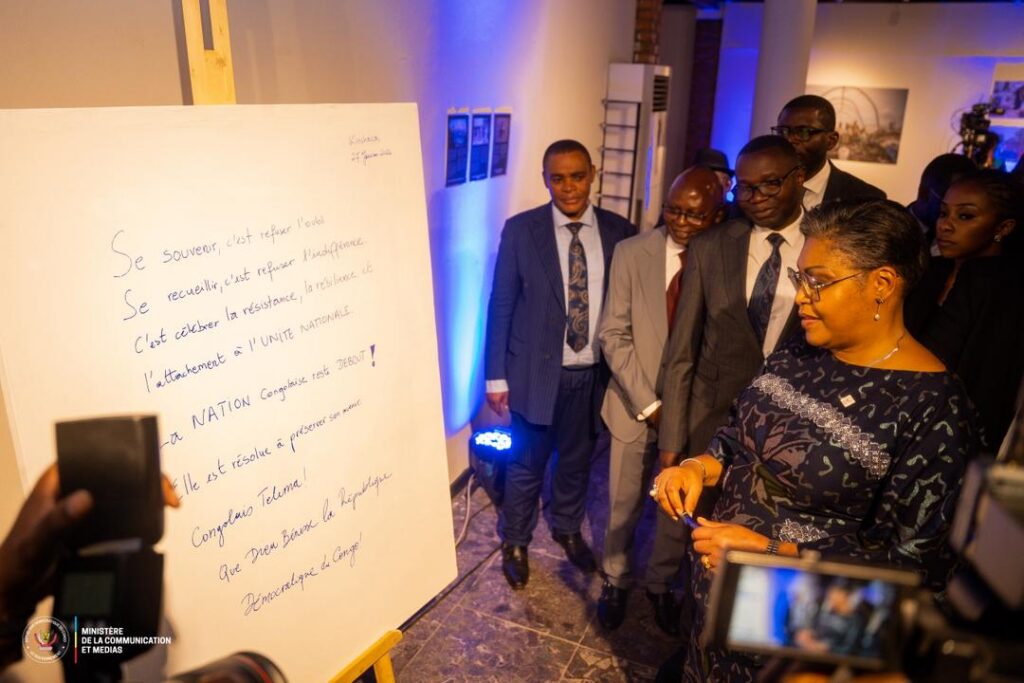 Kinshasa
27 Janvier
Se souvenir, c'est refuser l'oubli
Se recueillir, c'est refuser l'indifférence
C'est célébrer la résistance, la résilience et
l'attachement à l'UNITE NATIONALE.
La NATION Congolaise reste DEBOUT !
Elle est résolue à préserver son avenir
Congolais Telema !
Que Dieu Bénisse la République
Démocratique du Congo !
MINISTÈRE
DE LA COMMUNICATION
ET MEDIAS